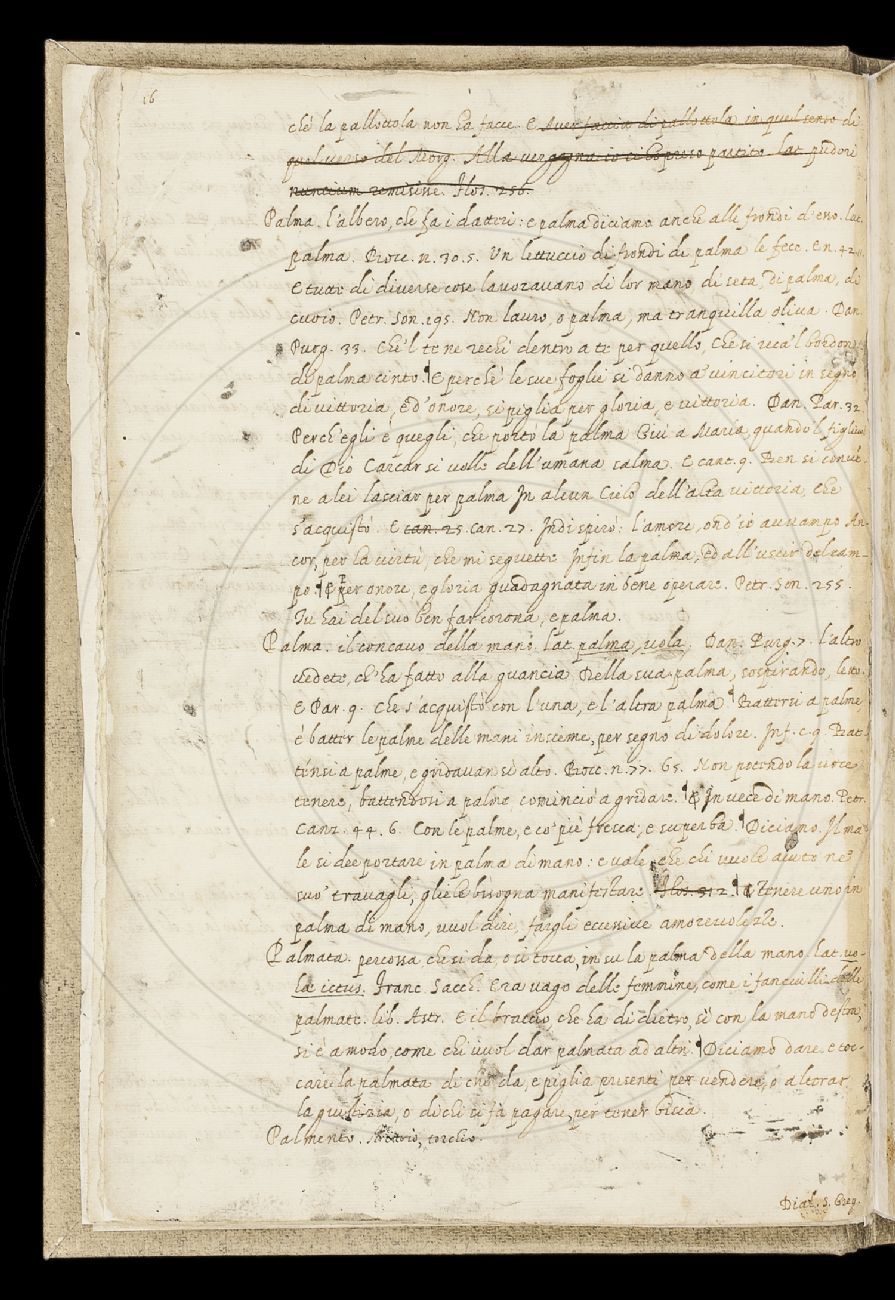 16
chè la pallottola non ha facce. E Aver faccia di pallottola in quel senso di
quel verso del Morg. Alla vergogna io ci ho preso partito. lat. pudori
nuncium remisisse. Flos. 256.
Palma. l'albero, che fa i datteri: e palma diciamo anche alle frondi d'esso. lat.
palma. Bocc. n. 30. 5. Un lettuccio di frondi di palma le fece. E n. 42.
E tutte di diverse cose lavoravano di lor mano di seta, di palma, di
cuoio. Petr. Son. 195. Non lauro, o palma, ma tranquilla oliva. Dan.
Purg. 33. Che'l te ne rechi dentro a te per quello, Che si reca'l bordon
di palma cinto. E perchè le sue foglie si danno a' vincitori in segno
di vittoria, e d'onore, si piglia per gloria, e vittoria. Dan. Par. 32.
Perch'egli è quegli, che portò la palma Giù a Maria, quando'l figliuol
di Dio Carcar si volle dell'umana salma. E cant. 9. Ben si convie-
ne a lei lasciar per palma In alcun Cielo dell'alta vittoria, Che
s'acquistò. E can. 25. Can. 27. Indi spirò: l'amore, ond'io avvampo An-
cor, per la virtù, che mi seguette Infin la palma, ed all'uscir del cam-
po. E per onore, e gloria guadagnata in bene operare. Petr. Son. 255.
Tu hai del suo ben far corona, e palma.
Palma. il concavo della mano. lat. palma, vola. Dan. Purg. 7. l'altro
vedete, ch'ha fatto alla guancia Della sua palma, sospirando, letto.
E Par. 9. Che s'acquistò con l'una, e l'altra palma. Battersi a palme
è batter le palme delle mani insieme, per segno di dolore. Inf. c. 9. Bat-
tensi a palme, e gridavan sì alto. Bocc. n. 77. 65. Non potendo la voce
tenere, battendosi a palme, cominciò a gridare. E In vece di mano. Petr.
Canz. 44. 6. Con le palme, e co' piè fresca, e superba. Diciamo. Il ma
le si dee portare in palma di mano: e vale, che chi vuole aiuto ne'
suo' travagli, gliele bisogna manifestare. Flos. 312. E Tenere uno in
palma di mano, vuol dire, fargli eccessive amorevolezze.
Palmata. percossa, che si da, o si tocca, in su la palma della mano. lat. vo-
lae ictus. Franc. Sacch. Era vago delle femmine, come i fanciulli delle
palmate. lib. Astr. E il braccio, che ha di dietro, si è con la mano destra,
si è a modo, come chi vuol dar palmata ad altri. Diciamo dare, e toc-
care la palmata di chi dà, e piglia presenti per vendere, o alterar
la giustizia, o di chi si fa pagare, per tener bisca.
Palmento. torchio.
Dial. S. Greg.